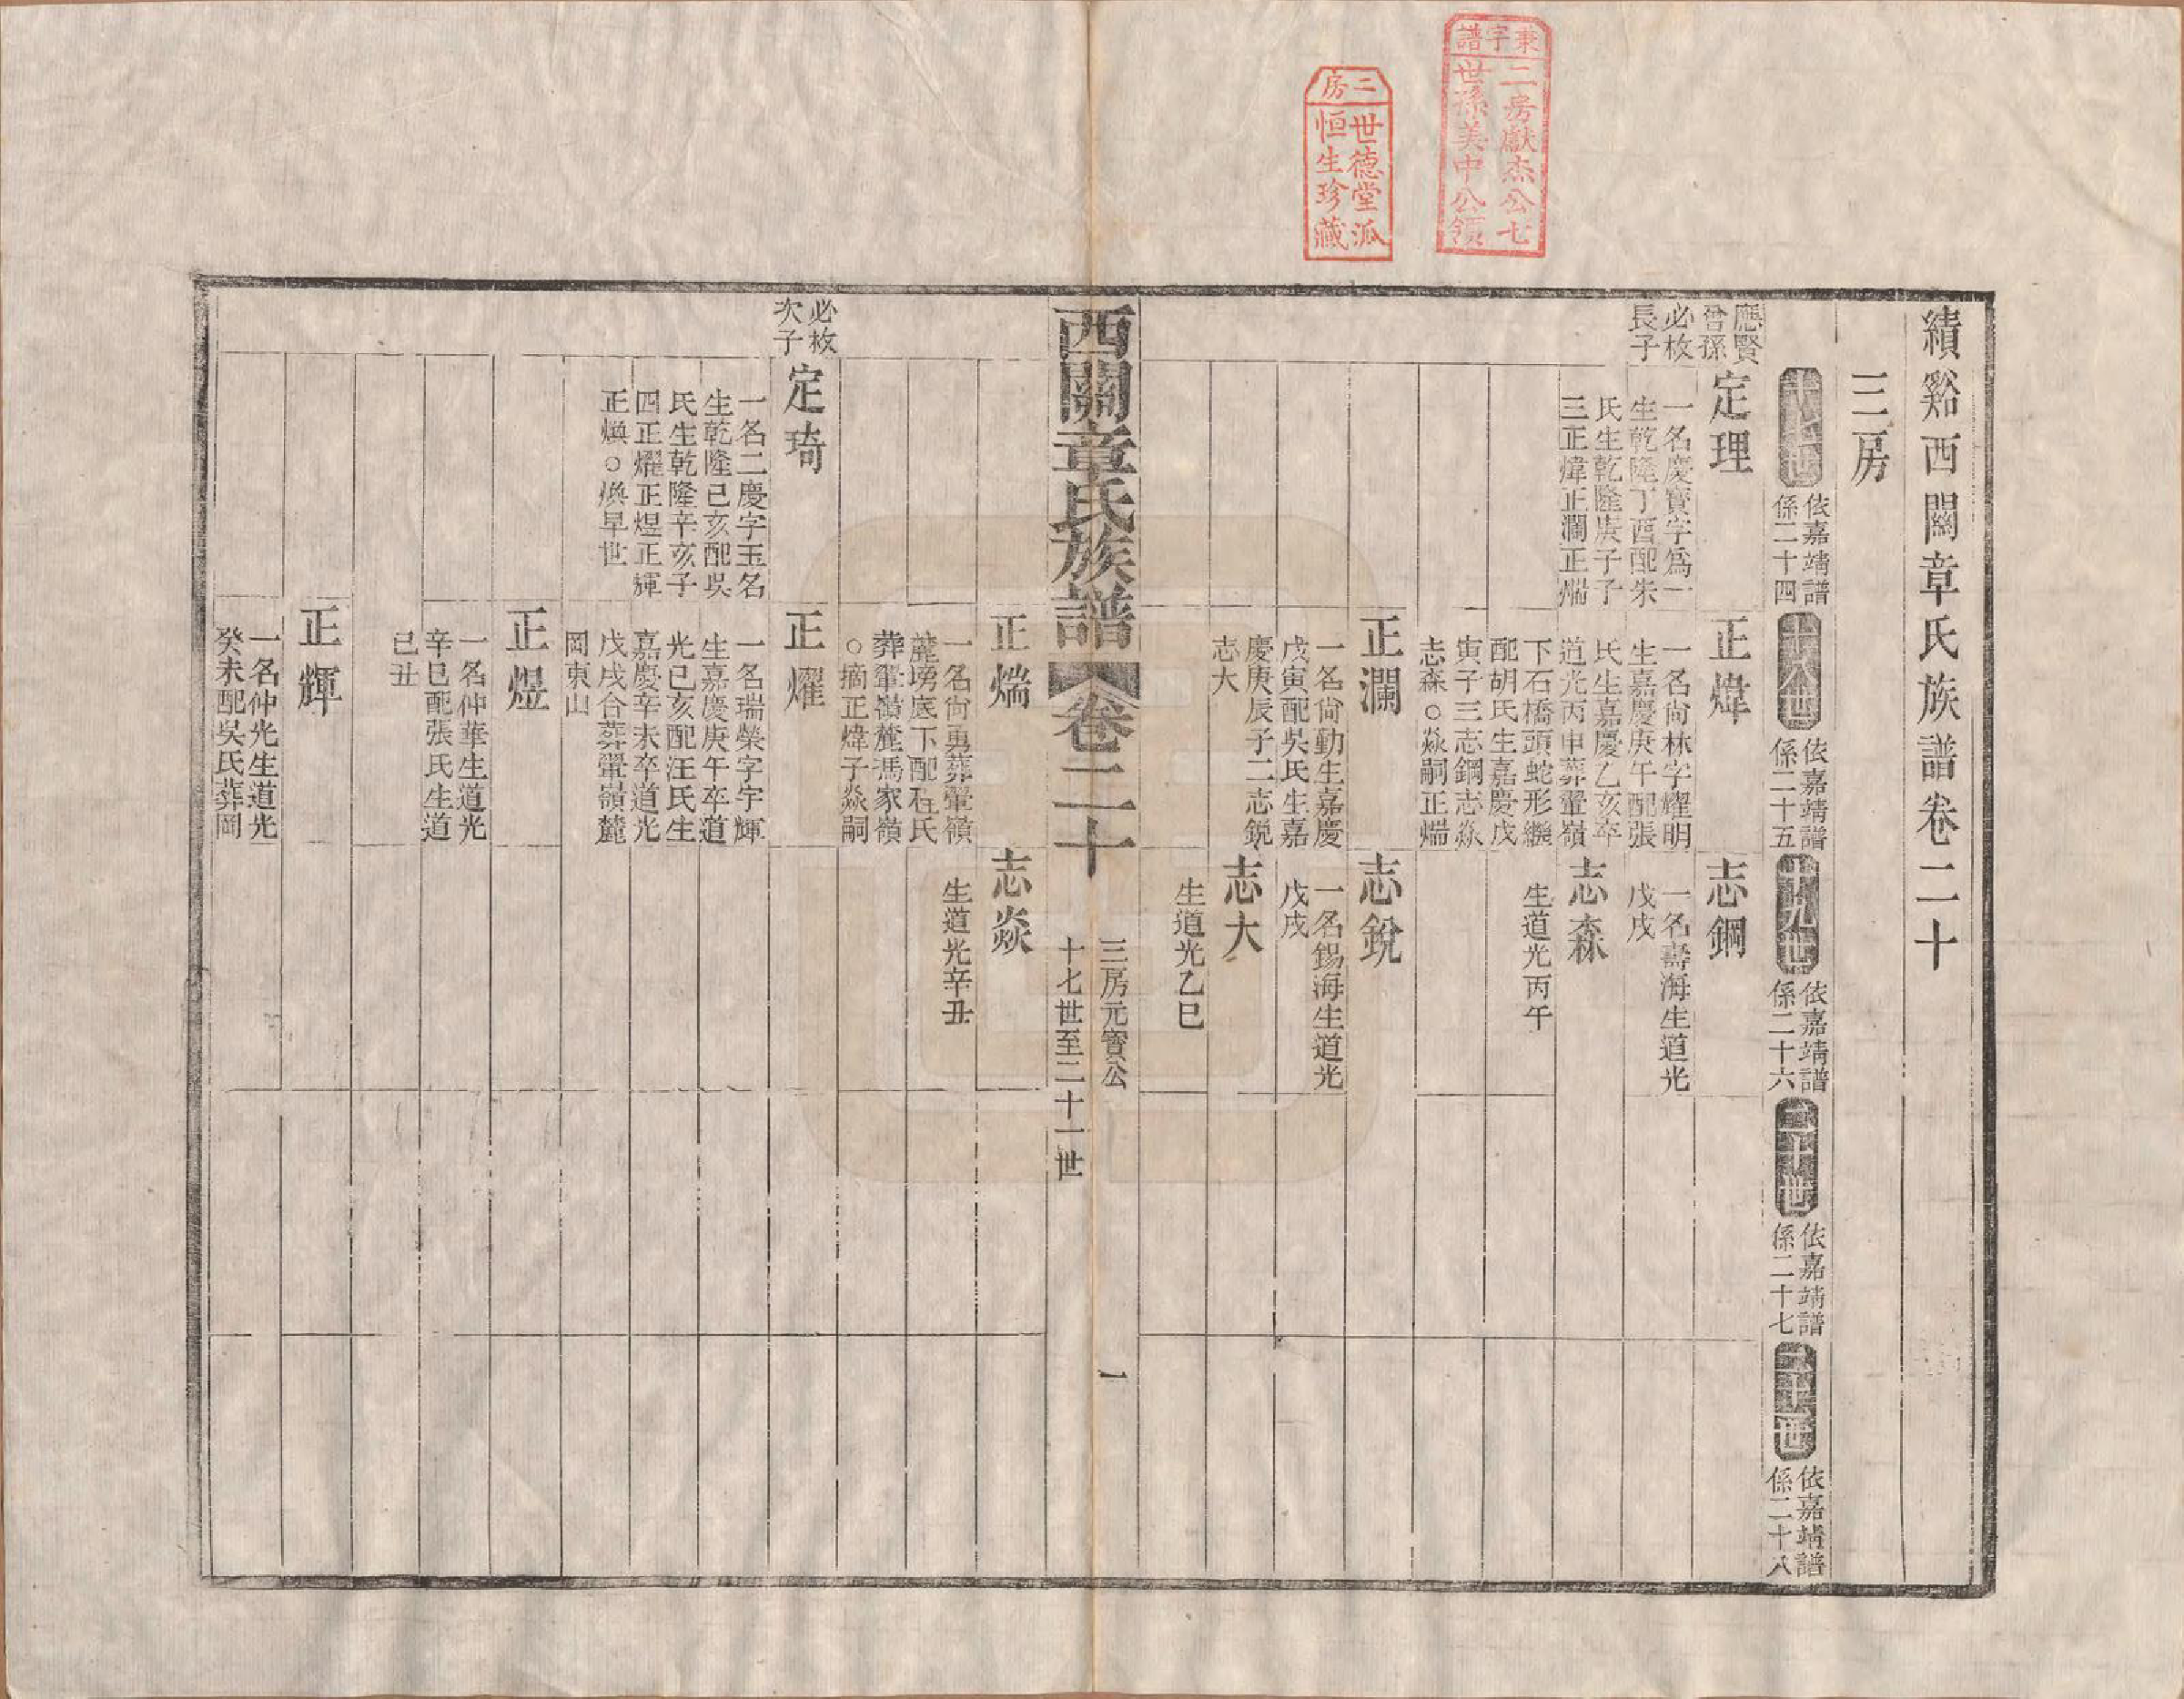 績谿西關章氏族譜卷二十
三房
十七世
依嘉靖譜
係二十四
十八世
依嘉靖譜
係二十五
十九世
依嘉靖譜
係二十六
二十世
依嘉靖譜
係二十七
二十一世
依嘉靖譜
係二十八
應賢
曾孫
必枚
長子
定理
一名慶寳字為一
生乾隆丁酉配朱
氏生乾隆庚子子
三正煒正瀾正煓
正煒
一名尙林字燿明
生嘉慶庚午配張
氏生嘉慶乙亥卒
道光丙申葬翬嶺
下石橋頭蛇形繼
配胡氏生嘉慶戊
寅子三志鋼志焱
志森○焱嗣正煓
志鋼
一名壽海生道光
戊戌
志森
生道光丙午
正瀾
一名尙勤生嘉慶
戊寅配吳氏生嘉
慶庚辰子二志銳
志大
志銳
一名錫海生道光
戊戌
志大
生道光乙巳
西關章氏族譜
卷二十
三房元寳公
十七世至二十一世
一
正煓
一名尙勇葬翬嶺
麓塝底下配程氏
葬翬嶺麓馮家嶺
○摘正煒子焱嗣
志焱
生道光辛丑
必枚
次子
定琦
一名二慶字玉名
生乾隆己亥配吳
氏生乾隆辛亥子
四正燿正煜正輝
正煥○煥早世
正燿
一名瑞榮字字輝
生嘉慶庚午卒道
光己亥配汪氏生
嘉慶辛未卒道光
戊戌合葬翬嶺麓
岡東山
正煜
一名仲華生道光
辛巳配張氏生道
己丑
正輝
一名仲光生道光
癸未配吳氏葬岡
秉字譜
二房獻杰公七
世孫美中公領
二房
世德堂派
恒生珍藏